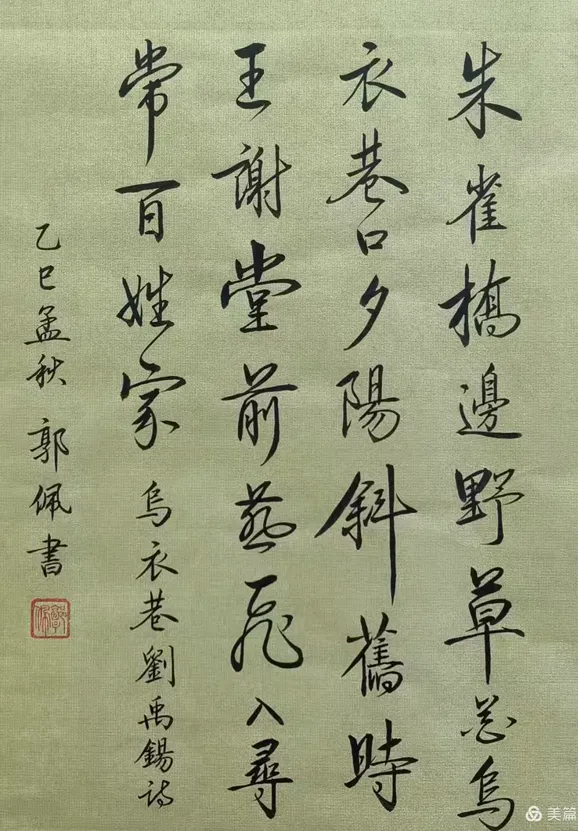 朱雀橋邊野草花烏
衣巷口夕陽斜舊時
王謝堂前燕飛入尋
常百姓家 烏衣巷劉禹錫詩
乙巳孟秋 郭佩書
美篇